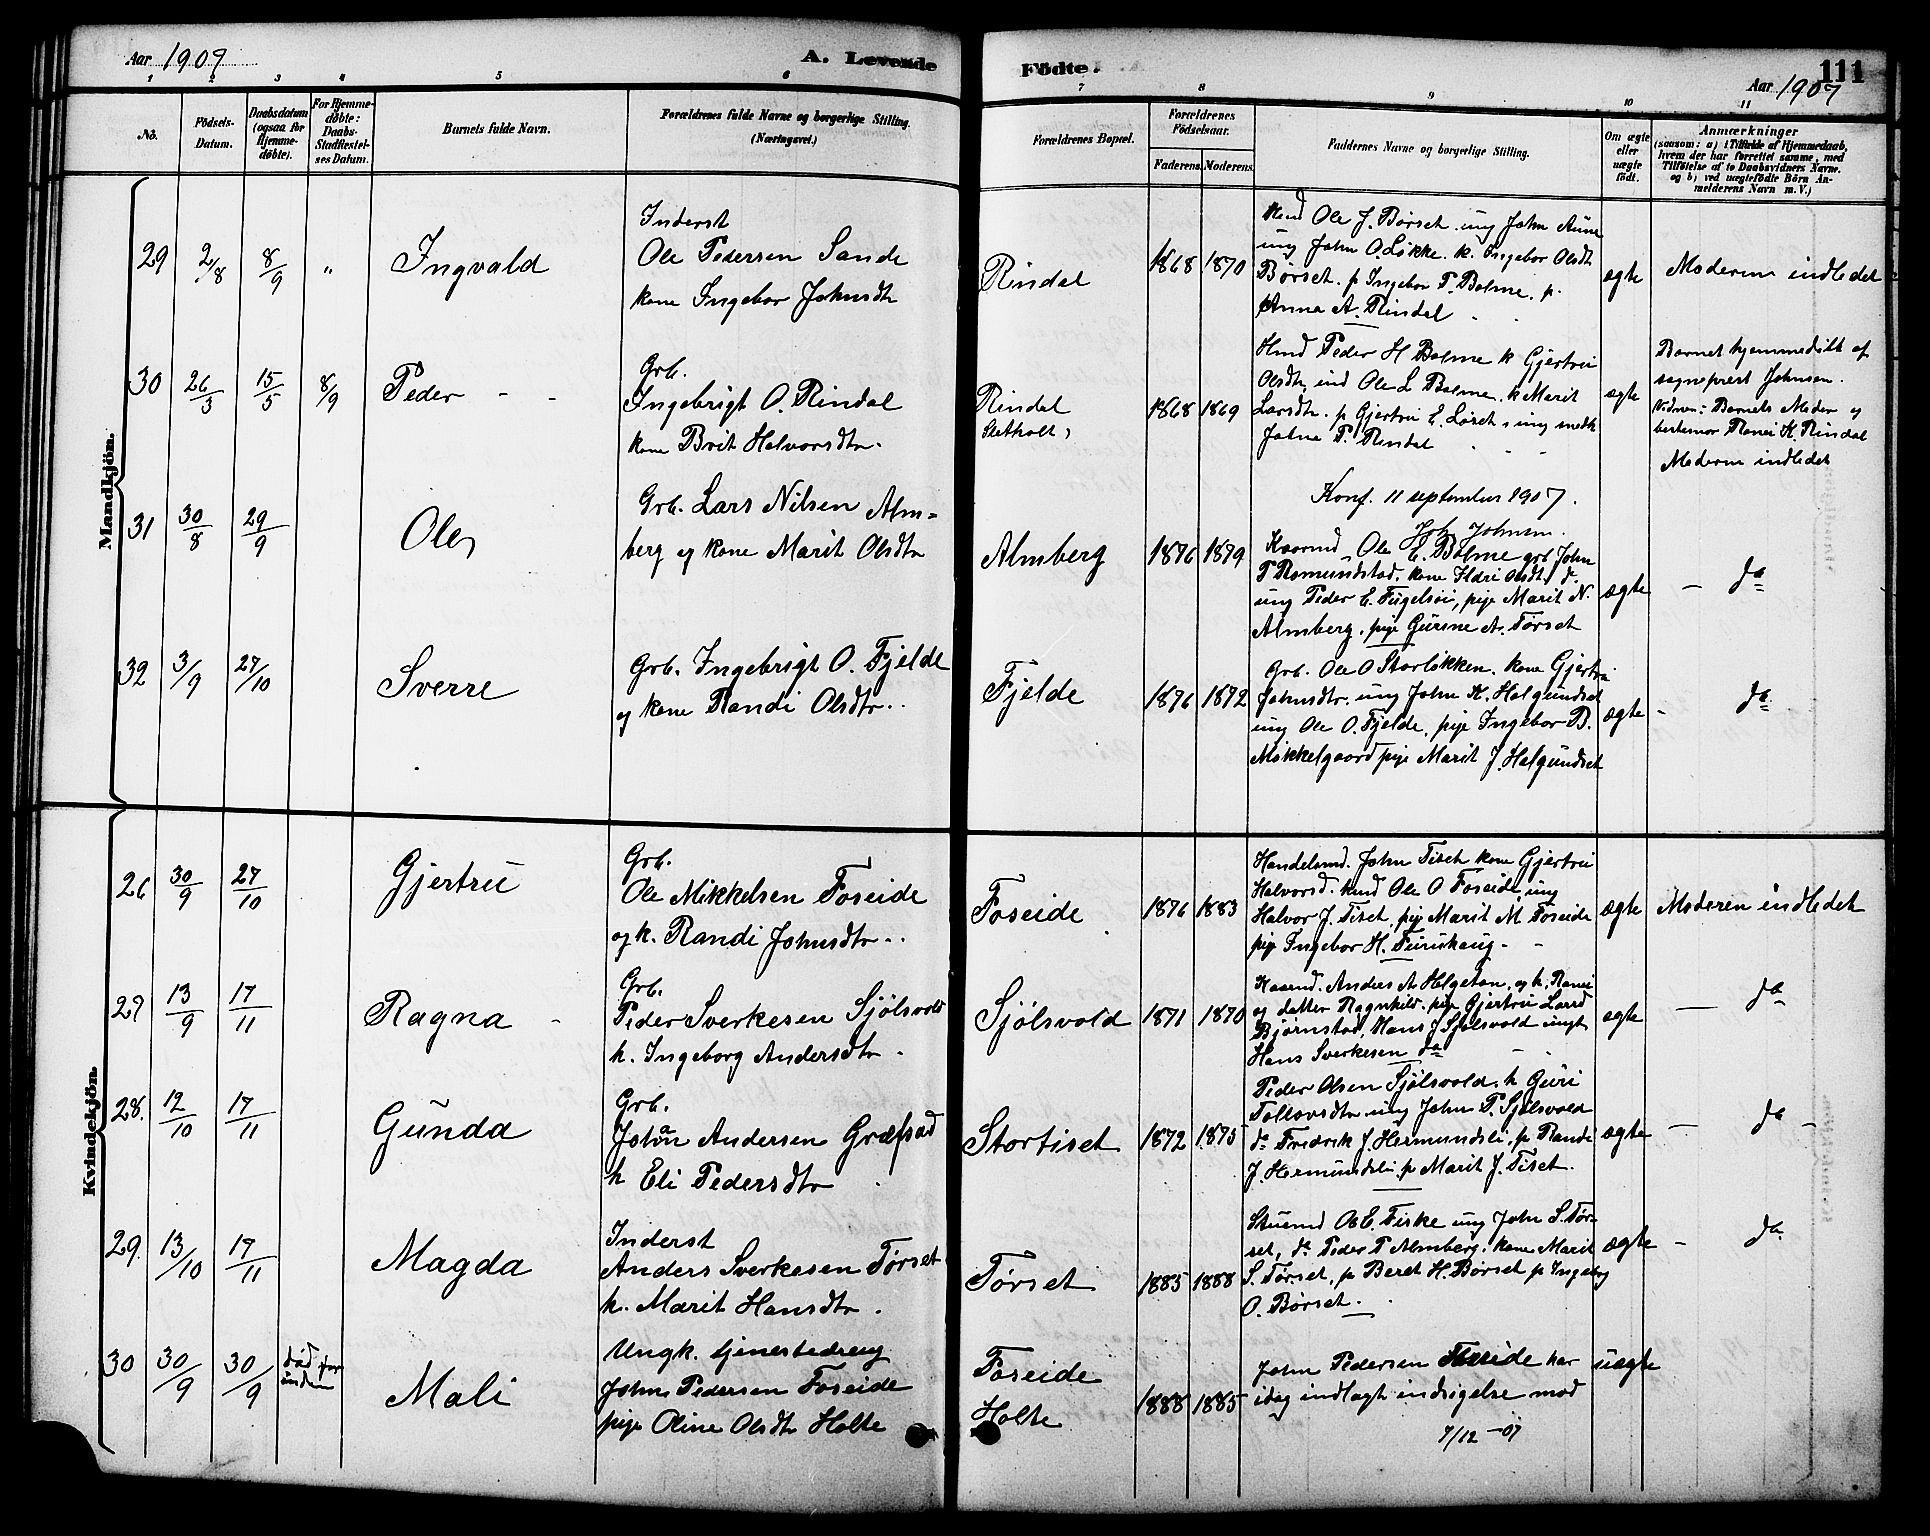 Aar 1907
A. Levende
1 2 3 4 5 6
No.
Födsels-
Datum.
Daabsdatum
(ogsaa for
Hjemme-
döbte).
For Hjemme-
döbte:
Daabs-
Stadfæstel-
ses Datum.
Barnets fulde Navn.
Forældrenes fulde Navne og borgerlige Stilling.
(Næringsvei.)
Mandkjön.
29 2/8 8/9 " Ingvald
Inderst
Ole Pedersen Sande
kone Ingebor Johnsdtr
30 26/3 15/5 8/9 Peder - -
Grb.
Ingebrigt O. Rindal
kone Brit Halvorsdtr.
31 30/8 29/9 Ole
Grb. Lars Nilsen Alm-
berg og kone Marit Olsdtr
32 3/9 27/10 Sverre
Grb. Ingebrigt O. Fjelde
og kone Randi Olsdtr..
Kvindekjön.
26 30/9 27/10 Gjertrü
Grb.
Ole Mikkelsen Foseide
og k. Randi Johnsdtr..
27 13/9 17/11 Ragna -
Grb.
Peder Sverkesen Sjölsvold
k. Ingeborg Andersdtr.
28. 12/10 17/11 Günda
Grb.
Johan Andersen Græfsad
k Eli Pedersdtr
29. 13/10 17/11 Magda
Inderst
Anders Sverkesen Tørset
k. Marit Hansdtr.
30 30/9 30/9 död Mali
Ungk. tjenestedreng
John Pedersen Foseide
pige Oline Olsdtr Holte
Födte.
111
Aar 1907
7 8 9 10 11
Forældrenes Bopæl.
Forældrenes
Födselsaar.
Faderens. Moderens.
Faddernes Navne og borgerlige Stilling.
Om ægte
eller
uægte
födt.
Anmærkninger
(saasom: a) i Tilfælde af Hjemmedaab,
hvem der har forrettet samme, med
Tilföielse af to Daabsvidners Navne.
og b) ved uægtefödte Börn An-
melderens Navn m. V.)
Rindal 1868 1870
Ole J. Børset. ung John Aune
ung John O. Løkke. k. Ingebor Olsdt
Børset. p Ingebor T. Bolme. p.
Anna A. Rindal
ægte Moderen indledet
Rindal
1868 1869
Hmd Peder H Bolme k Gjertrü
Olsdtr, ind Ole L Bolme. k Marit
Larsdtr. p Gjertrü E. Løset, ung
Johne P. Rindal
ægte
Barnet hjemmedöbt af
sogneprest Johnsen.
Vidner: Barnets Moder og
bestemor Ranei K. Rindal
Moderen indledet
Konf. 11 september 1907.
Joh. Johnsen.
Almberg 1876 1879
Kaarmd Ole E. Bolme grb. John
T Romundstad. kone Ildri Olsdtr d.
ung Peder E. Fugelsøi, pige Marit N.
Almberg. pige Gurine A. Tørset
ægte - do
Fjelde 1876 1872
Grb. Ole O Storløkken. kone Gjertrü
Johnsdtr. ung John K. Halgundset
ung Ole O. Fjelde, pige Ingebor B.
Mikkelgaard pige Marit J. Halgundset
ægte - do
Foseide 1876 1883
Handelsmd. John Tiset kone Gjertrü
Halvorsd. kmd Ole O Foseide, ung
Halvor J. Tiset, pige Marit M. Foseide
pige Ingebor H. Furuhaug.
ægte Moderen indledet
Sjölsvold 1871 1870
Kaarmd. Anders A Helgetun, og k. Ranei
og datter Ragnhild. pige Gjertrü Larsd
Bjørnstad, Hans J Sjølsvold ungk
Hans Sverkesen do
ægte - do
Stortiset 1872 1875
Peder Olsen Sjølsvold. k Guri
ung John P. Sjølsvold
do Fredrik J. Hermundsli, p Randi
J. Hermundsli. p Marit J. Tiset.
ægte - do -
Tørset 1885 1888
Stuemd Ole E. Fiske ung John S. Tør-
set, do Peder P Almberg. kone Marit
S. Tørset, p Beret H. Børset p Ingeborg
O. Børset.
ægte - do
Foseide
Holte
1888 1885
John Pedersen Foseide har
idag indlagt indsigelse mod
7/12-07
uægte